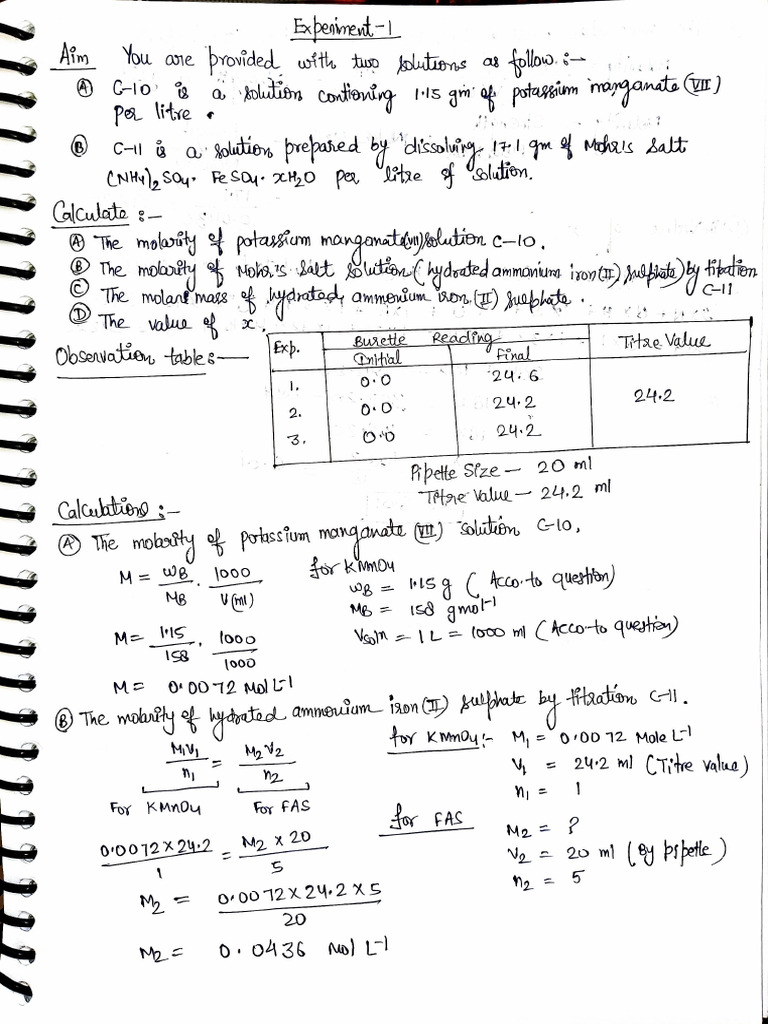 Experiment-1
Aim You are provided with two solutions as follow :-
(A) C-10 is a solution contioning 1.15 gm of potassium manganate (VII)
per litre.
(B) C-11 is a solution prepared by dissolving 17.1 gm of Mohr's salt
(NH4)2SO4. FeSO4. xH2O per litre of solution.
Calculate :-
(A) The molarity of potassium manganate(VII) solution C-10.
(B) The molarity of Mohr's salt solution (hydrated ammonium iron (II) sulphate) by titration C-11
(C) The molar mass of hydrated ammonium iron (II) sulphate.
(D) The value of x.
Observation table :-
Exp. Burette Reading Titre Value
Initial Final
1. 0.0 24.6
2. 0.0 24.2 24.2
3. 0.0 24.2
Pipette Size - 20 ml
Titre value - 24.2 ml
Calculations :-
(A) The molarity of potassium manganate (VII) solution C-10.
M = WB/MB . 1000/V(ml) for KMnO4
WB = 1.15 g (Acco. to question)
MB = 158 gmol-1
M = 1.15/158 . 1000/1000 Vsoln = 1 L = 1000 ml (Acco-to question)
M = 0.0072 Mol L-1
(B) The molarity of hydrated ammonium iron (II) sulphate by titration C-11.
M1V1/n1 = M2V2/n2 for KMnO4:- M1 = 0.0072 Mole L-1
V1 = 24.2 ml (Titre value)
n1 = 1
For KMnO4 For FAS
for FAS M2 = ?
0.0072 x 24.2/1 = M2 x 20/5 V2 = 20 ml (By pipette)
n2 = 5
M2 = 0.0072 x 24.2 x 5/20
M2 = 0.0436 Mol L-1